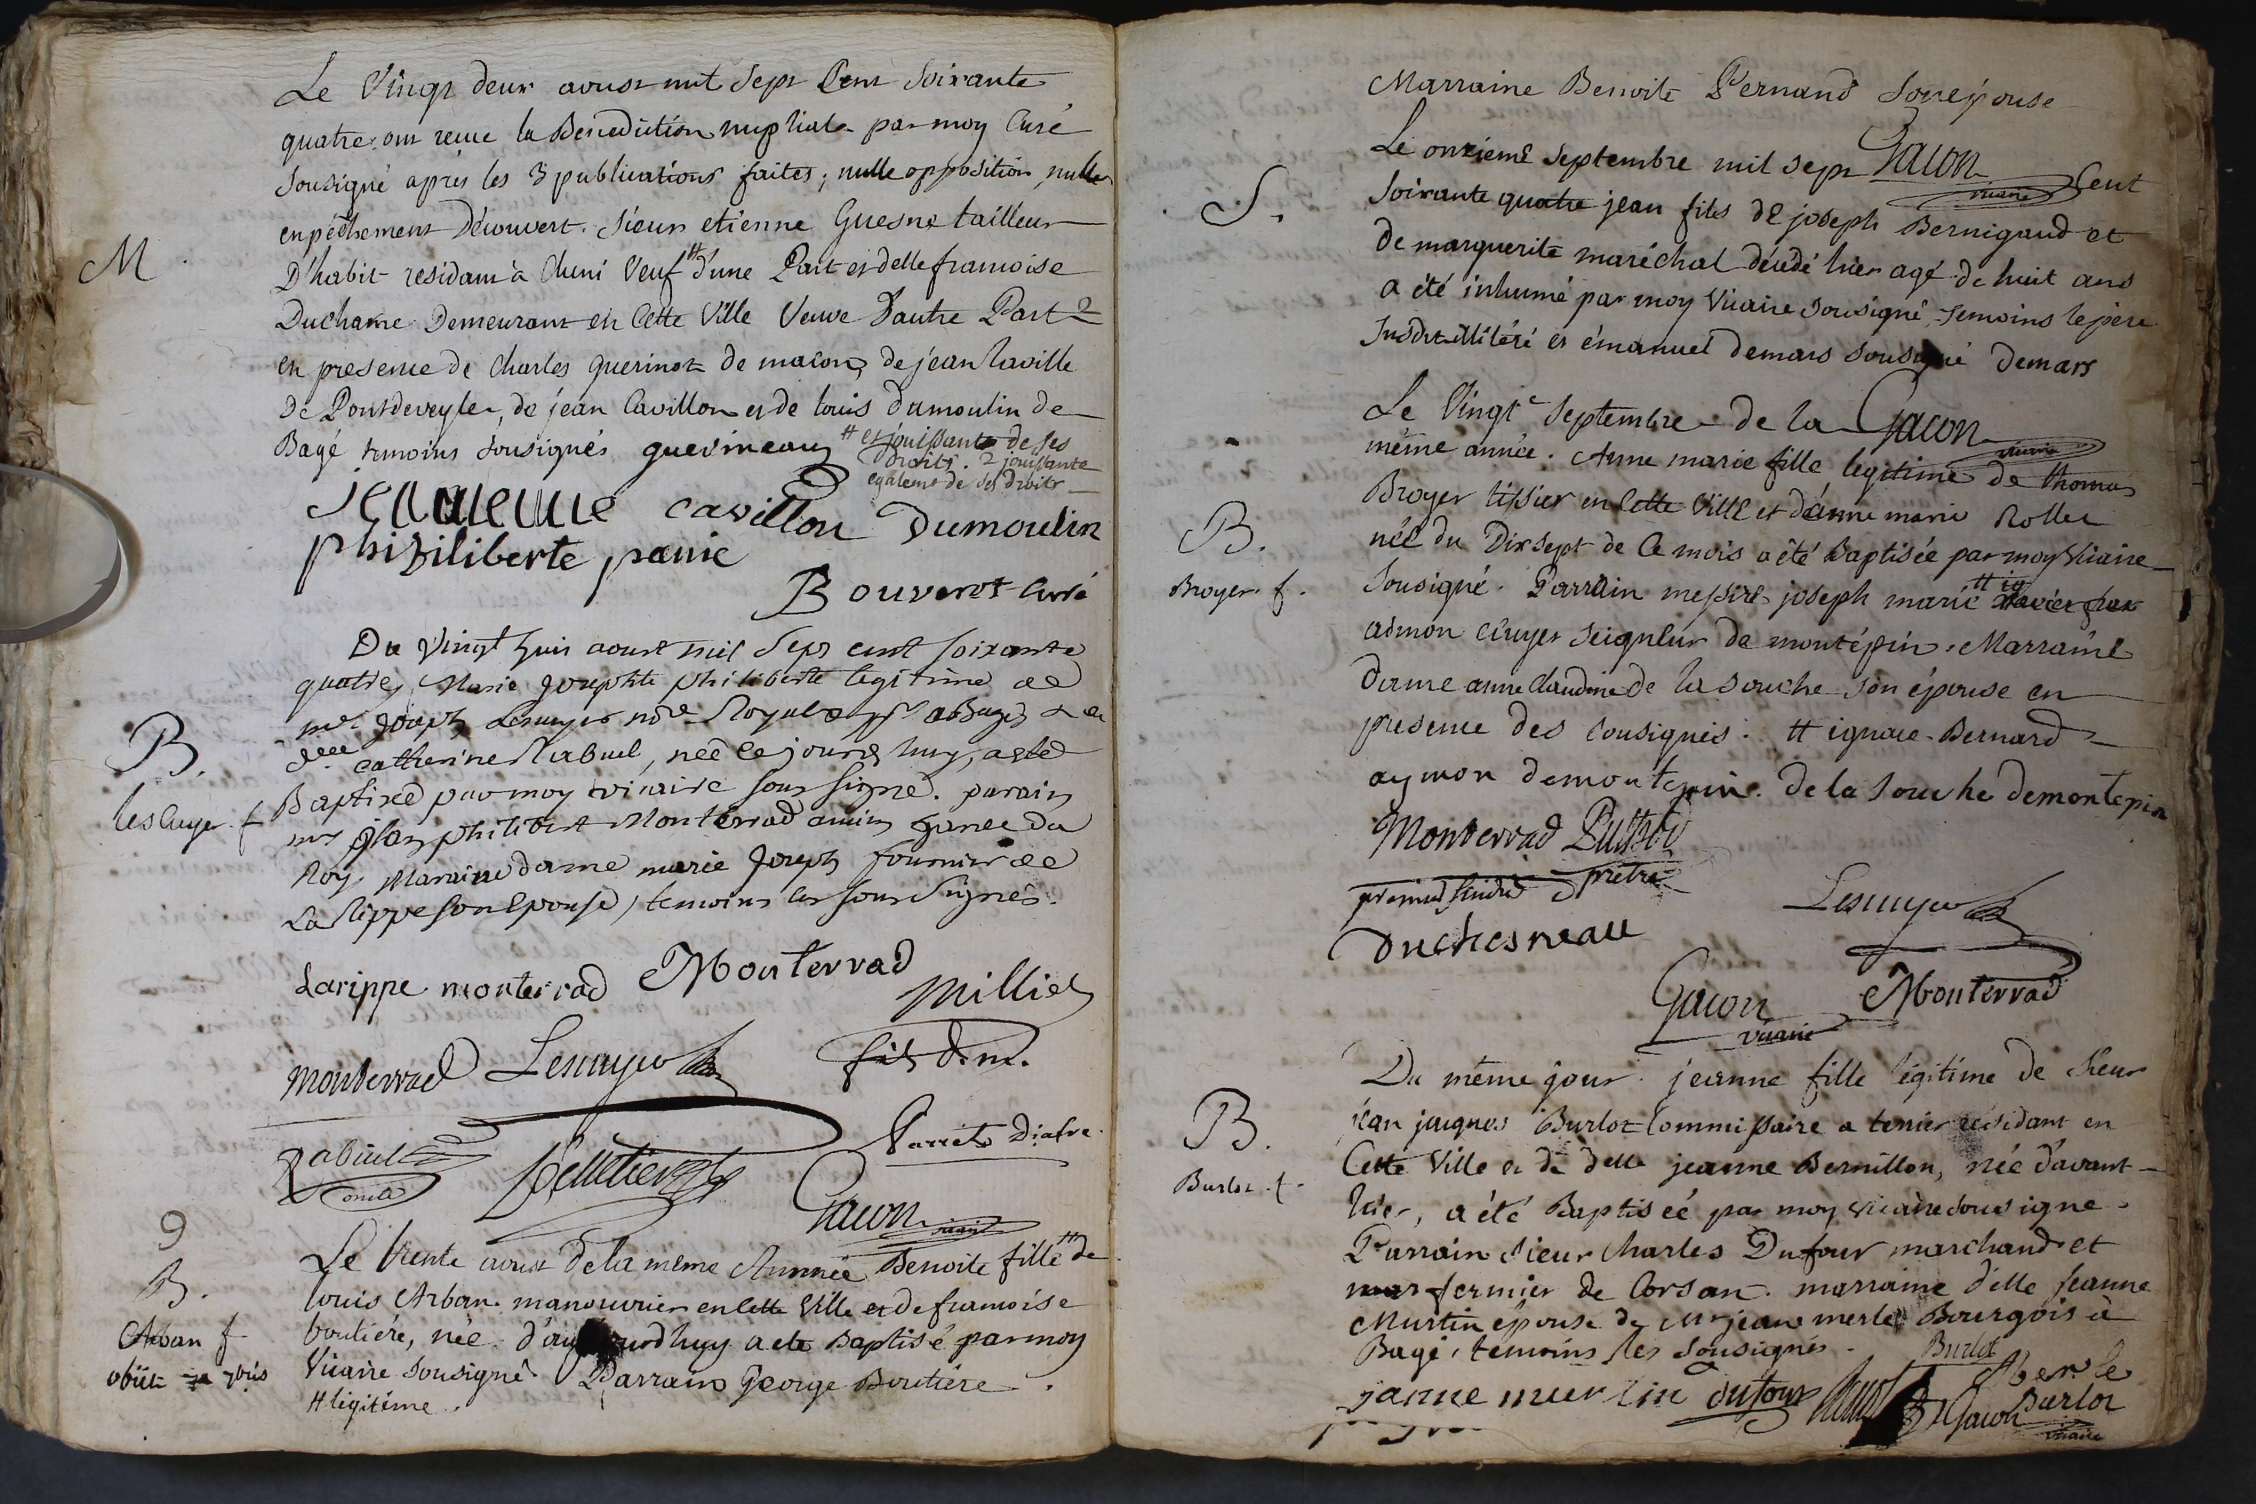 Le Vingt deux aoust mil sept Cent soixante
quatre ont recue la Benediction nuptiale par moy Curé
sousigné après les 3 publications faites; nulle opposition, nulle
enpéchement découvert. sieur etienne Guesne tailleur
M.
D'habit residant à Cluni Veuf # d'une Part et delle francoise
Duchasne Demeurant en Cette Ville Veuve d'autre Part 2
en presence de Charles guerinot de macon, de jean laville
de Pontdeveyle, de jean Cavillon et de louis dumoulin de
Bagé temoins sousignés guerineau # et jouissante de ses
droits. 2 jouissante
egalemt de ses droits
cavillon Dumoulin
phiziliberte panie
Bouverot Curé
Du vingt huit aoust mil sept cent soixante
quatre, Marie Josephte philiberte legitime de
mr Joseph Lescuyer nore Royal
B.
delle Catherine Rabuel, née ce jourd huy, a esté
lescuyer f
Baptisée par moy vicaire sous signé. parain
mr jean philibert Monterrad ancien garde du
Roy, Maraine dame marie Joseph fournier de
La Rippe son Epouse, temoins les sous signés.
Larippe monterrad Monterrad
Milliet
fils d. m.
Monterrad Lescuyer
Rabuel oncle Pelletier
Gacon vicaire
9
Le trente aoust de la même Année Benoite fille # de
B.
louis Arban manouvrier en Cette Ville et de francoise
Arban f
boutiére, née d'aujourdhuy a eté Baptisé par moy
obiit 7bris
Vicaire sousigné Parrain George Boutiere.
# légitime.
Marraine Benoite Pernand son épouse
Gacon vicaire
Le onzieme septembre mil sept Cent
S.
soixante quatre jean fils de joseph Bernigaud et
de marguerite maréchal décédé hier agé de huit ans
a été inhumé par moy Vicaire sousigné, temoins le père
susdit illitéré et émanuel demars sousigné demars
Le Vingte septembre de la Gacon vicaire
même année. Anne marie fille legitime de thomas
Broyer tissier en Cette Ville et d'anne marie Rollet
B.
née du Dix sept de Ce mois a été baptisée par moy Vicaire
Broyer. f.
sousigné. Parrain messire joseph marie # ig
aimon écuyer seigneur de montépin. Marraine
dame anne Claudine de la souche son épouse en
presence des sousignés. # ignace Bernard
aymon demontepin. de la souche demontepin
Monterrad
premier sindic prêtre
Lescuyer
duchesneau
Gacon vicaire Monterrad
Du même jour. jeanne fille légitime de sieur
B.
jean jacques Burlot Commissaire a terrier résidant en
Cette Ville et de delle jeanne Bernillon, née d'avant
Burlot. f.
hier, a été Baptisée par moy vicaire sousigné.
Parrain sieur Charles Dufour marchand et
fermier de Corsan. marraine d'elle Jeanne
Martin épouse de mr jean merle Bourgois à
Bagé, temoins les sousignés. Burlot
janne muertin dufour Merle
Burlot
Gacon vicaire